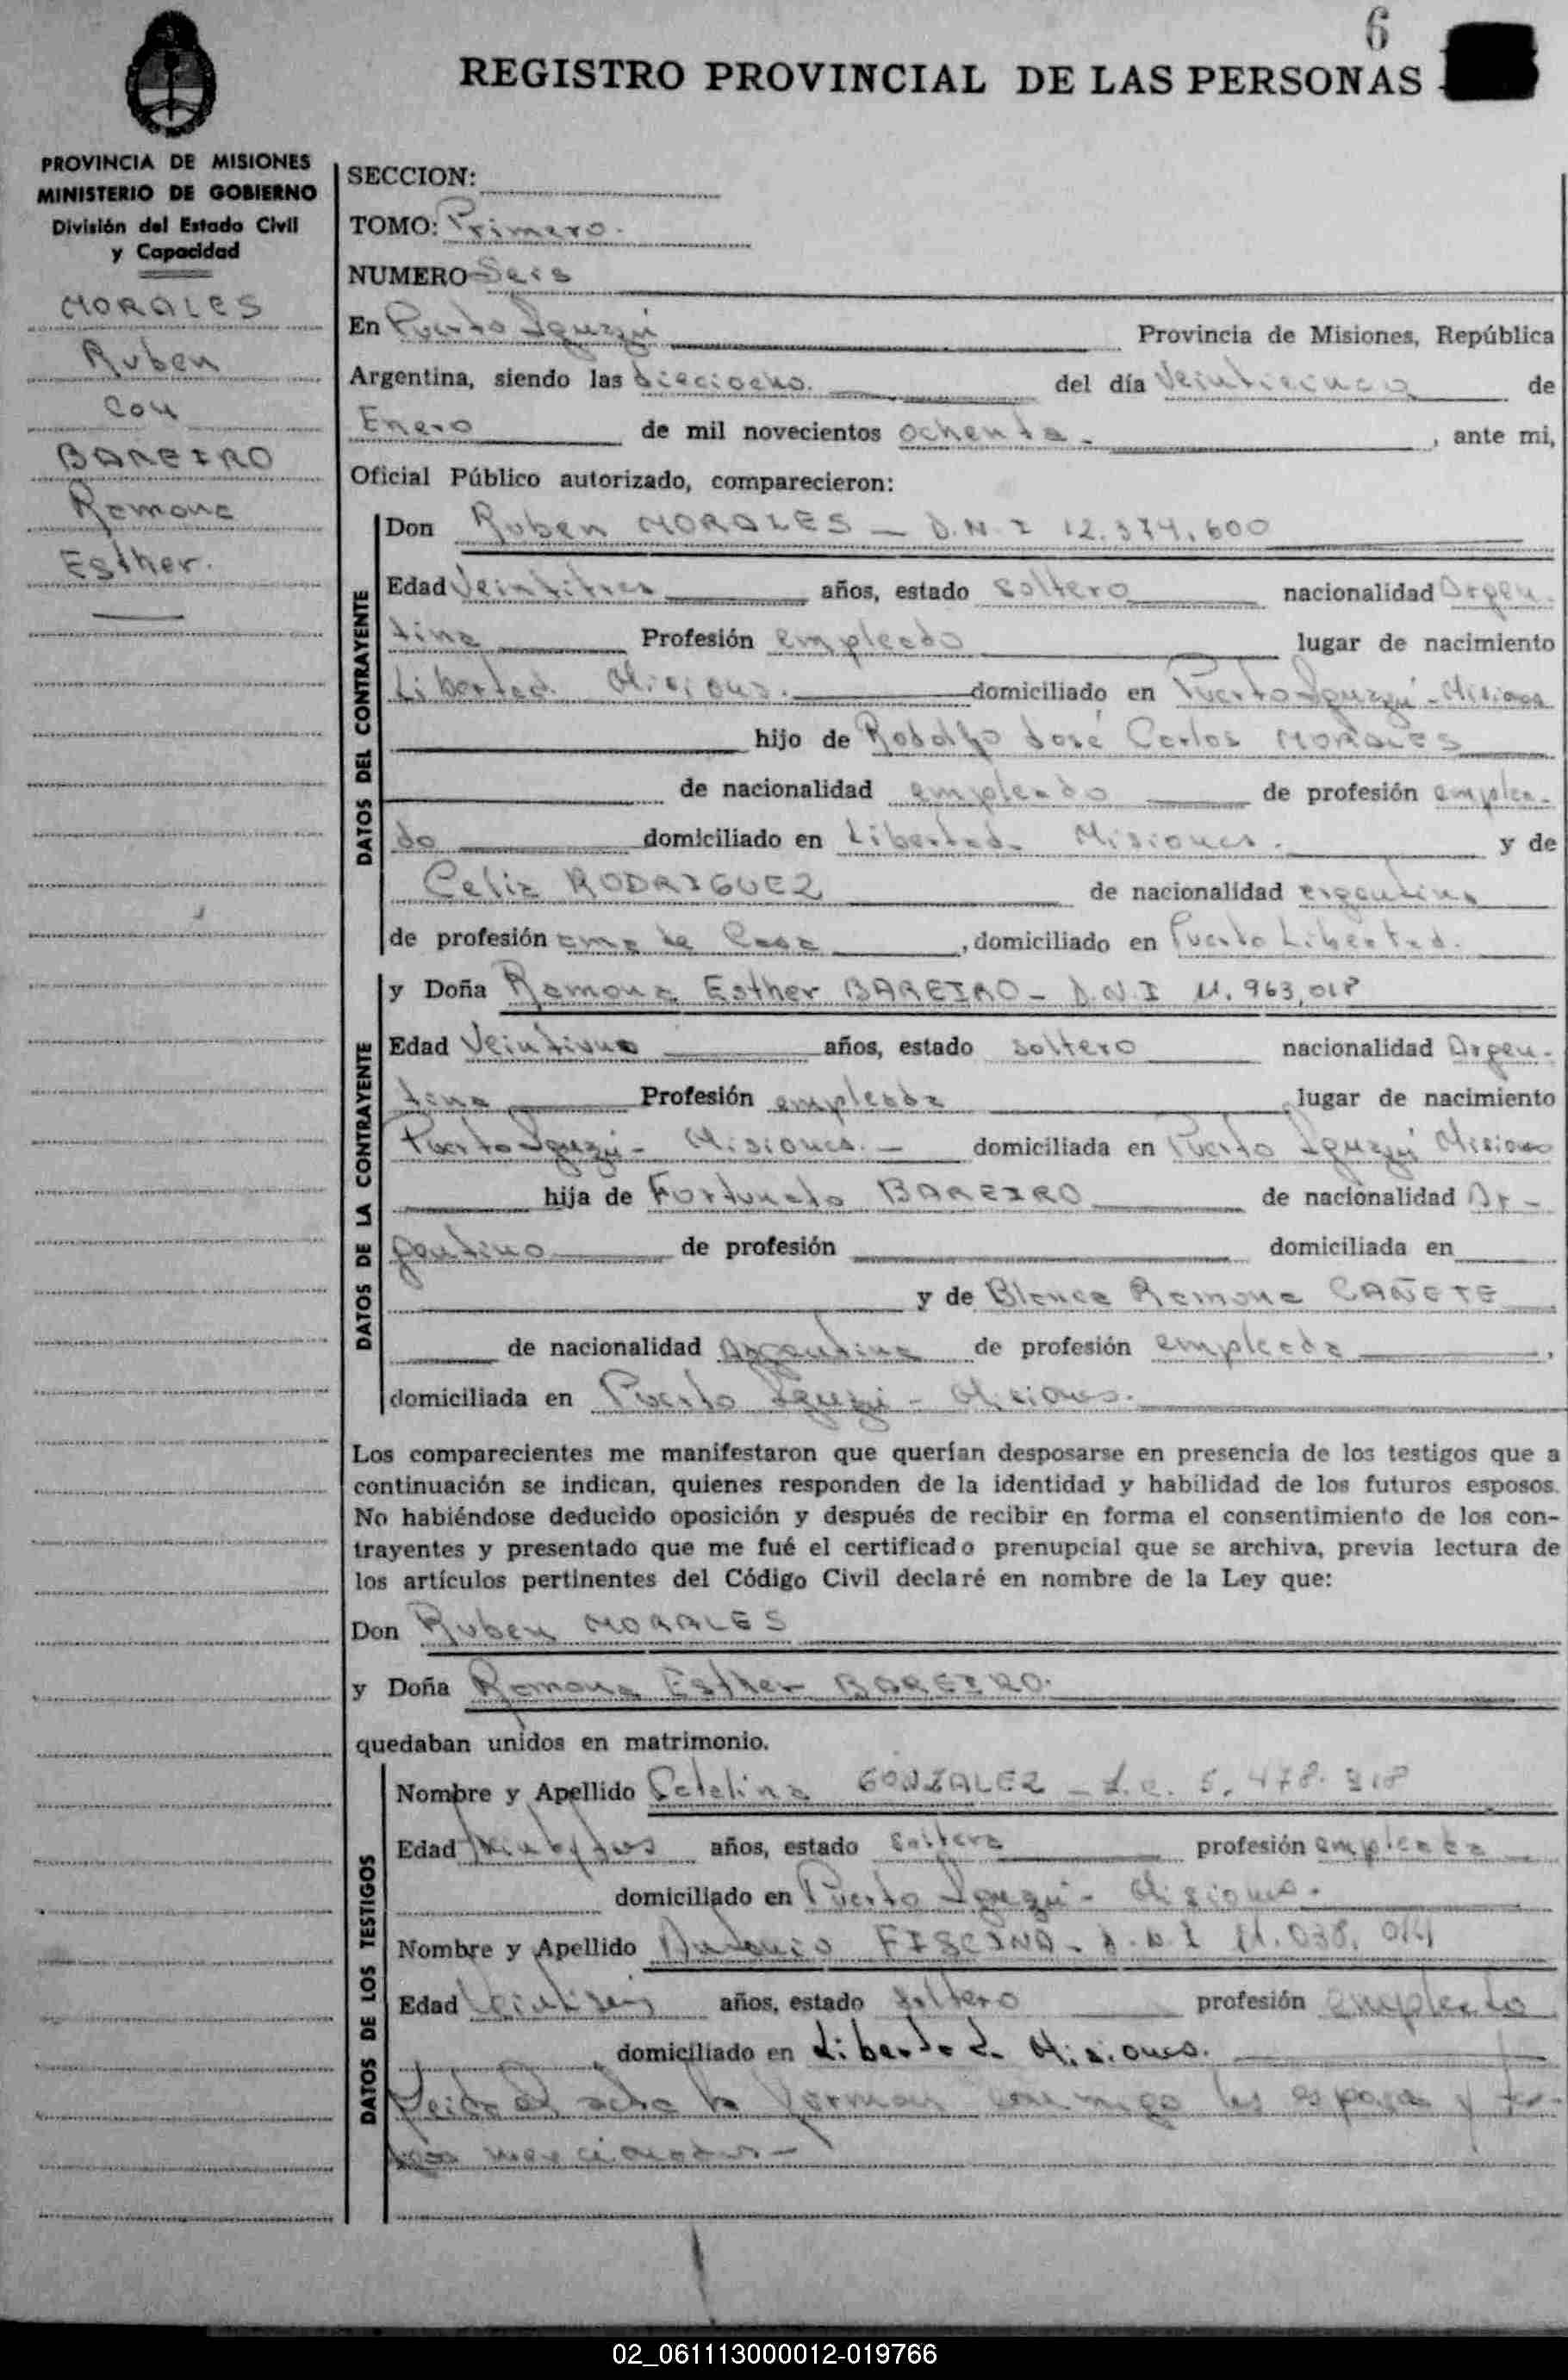 6
REGISTRO PROVINCIAL DE LAS PERSONAS
PROVINCIA DE MISIONES
MINISTERIO DE GOBIERNO
División del Estado Civil
y Capacidad
MORALES
Ruben
con
BAREIRO
Ramona
Esther.
SECCION:
TOMO: Primero.
NUMERO Seis
En Puerto Iguazú Provincia de Misiones, República
Argentina, siendo las dieciocho. del día Veinticinco de
Enero de mil novecientos ochenta - , ante mi,
Oficial Público autorizado, comparecieron:
DATOS DEL CONTRAYENTE
Don Ruben MORALES - D.N.I 12.374.600
Edad Veintitres años, estado soltero nacionalidad Argen-
tina Profesión empleado lugar de nacimiento
Libertad Misiones. domiciliado en Puerto Iguazú - Misiones
hijo de Rodolfo José Carlos MORALES
de nacionalidad empleado de profesión emplea-
do domiciliado en Libertad - Misiones. y de
Celia RODRIGUEZ de nacionalidad argentina
de profesión ama de Casa , domiciliado en Puerto Libertad.
DATOS DE LA CONTRAYENTE
y Doña Ramona Esther BAREIRO - D.N.I 11.963,018
Edad años, estado soltero nacionalidad Argen-
tina Profesión empleada lugar de nacimiento
Puerto Iguazú - Misiones. - domiciliada en Puerto Iguazú Misiones
hija de Fortunato BAREIRO de nacionalidad Ar-
gentino de profesión domiciliada en
y de Blanca Ramona CAÑETE
de nacionalidad Argentina de profesión empleada ,
domiciliada en Puerto Iguazú - Misiones.
Los comparecientes me manifestaron que querían desposarse en presencia de los testigos que a
continuación se indican, quienes responden de la identidad y habilidad de los futuros esposos.
No habiéndose deducido oposición y después de recibir en forma el consentimiento de los con-
trayentes y presentado que me fué el certificado prenupcial que se archiva, previa lectura de
los artículos pertinentes del Código Civil declaré en nombre de la Ley que:
Don Ruben MORALES
y Doña Ramona Esther BAREIRO.
quedaban unidos en matrimonio.
DATOS DE LOS TESTIGOS
Nombre y Apellido Catalina GONZALEZ - L.C. 5.478.
Edad años, estado soltera profesión empleada
domiciliado en Puerto Iguazú - Misiones.
Nombre y Apellido Antonio FISCINA - D.N.I 11.038,
Edad Veintiseis años, estado soltero profesión empleado
domiciliado en Libertad - Misiones.
Leida el acta la forman conmigo los esposos y tes-
tigos mencionados -
02_061113000012-019766